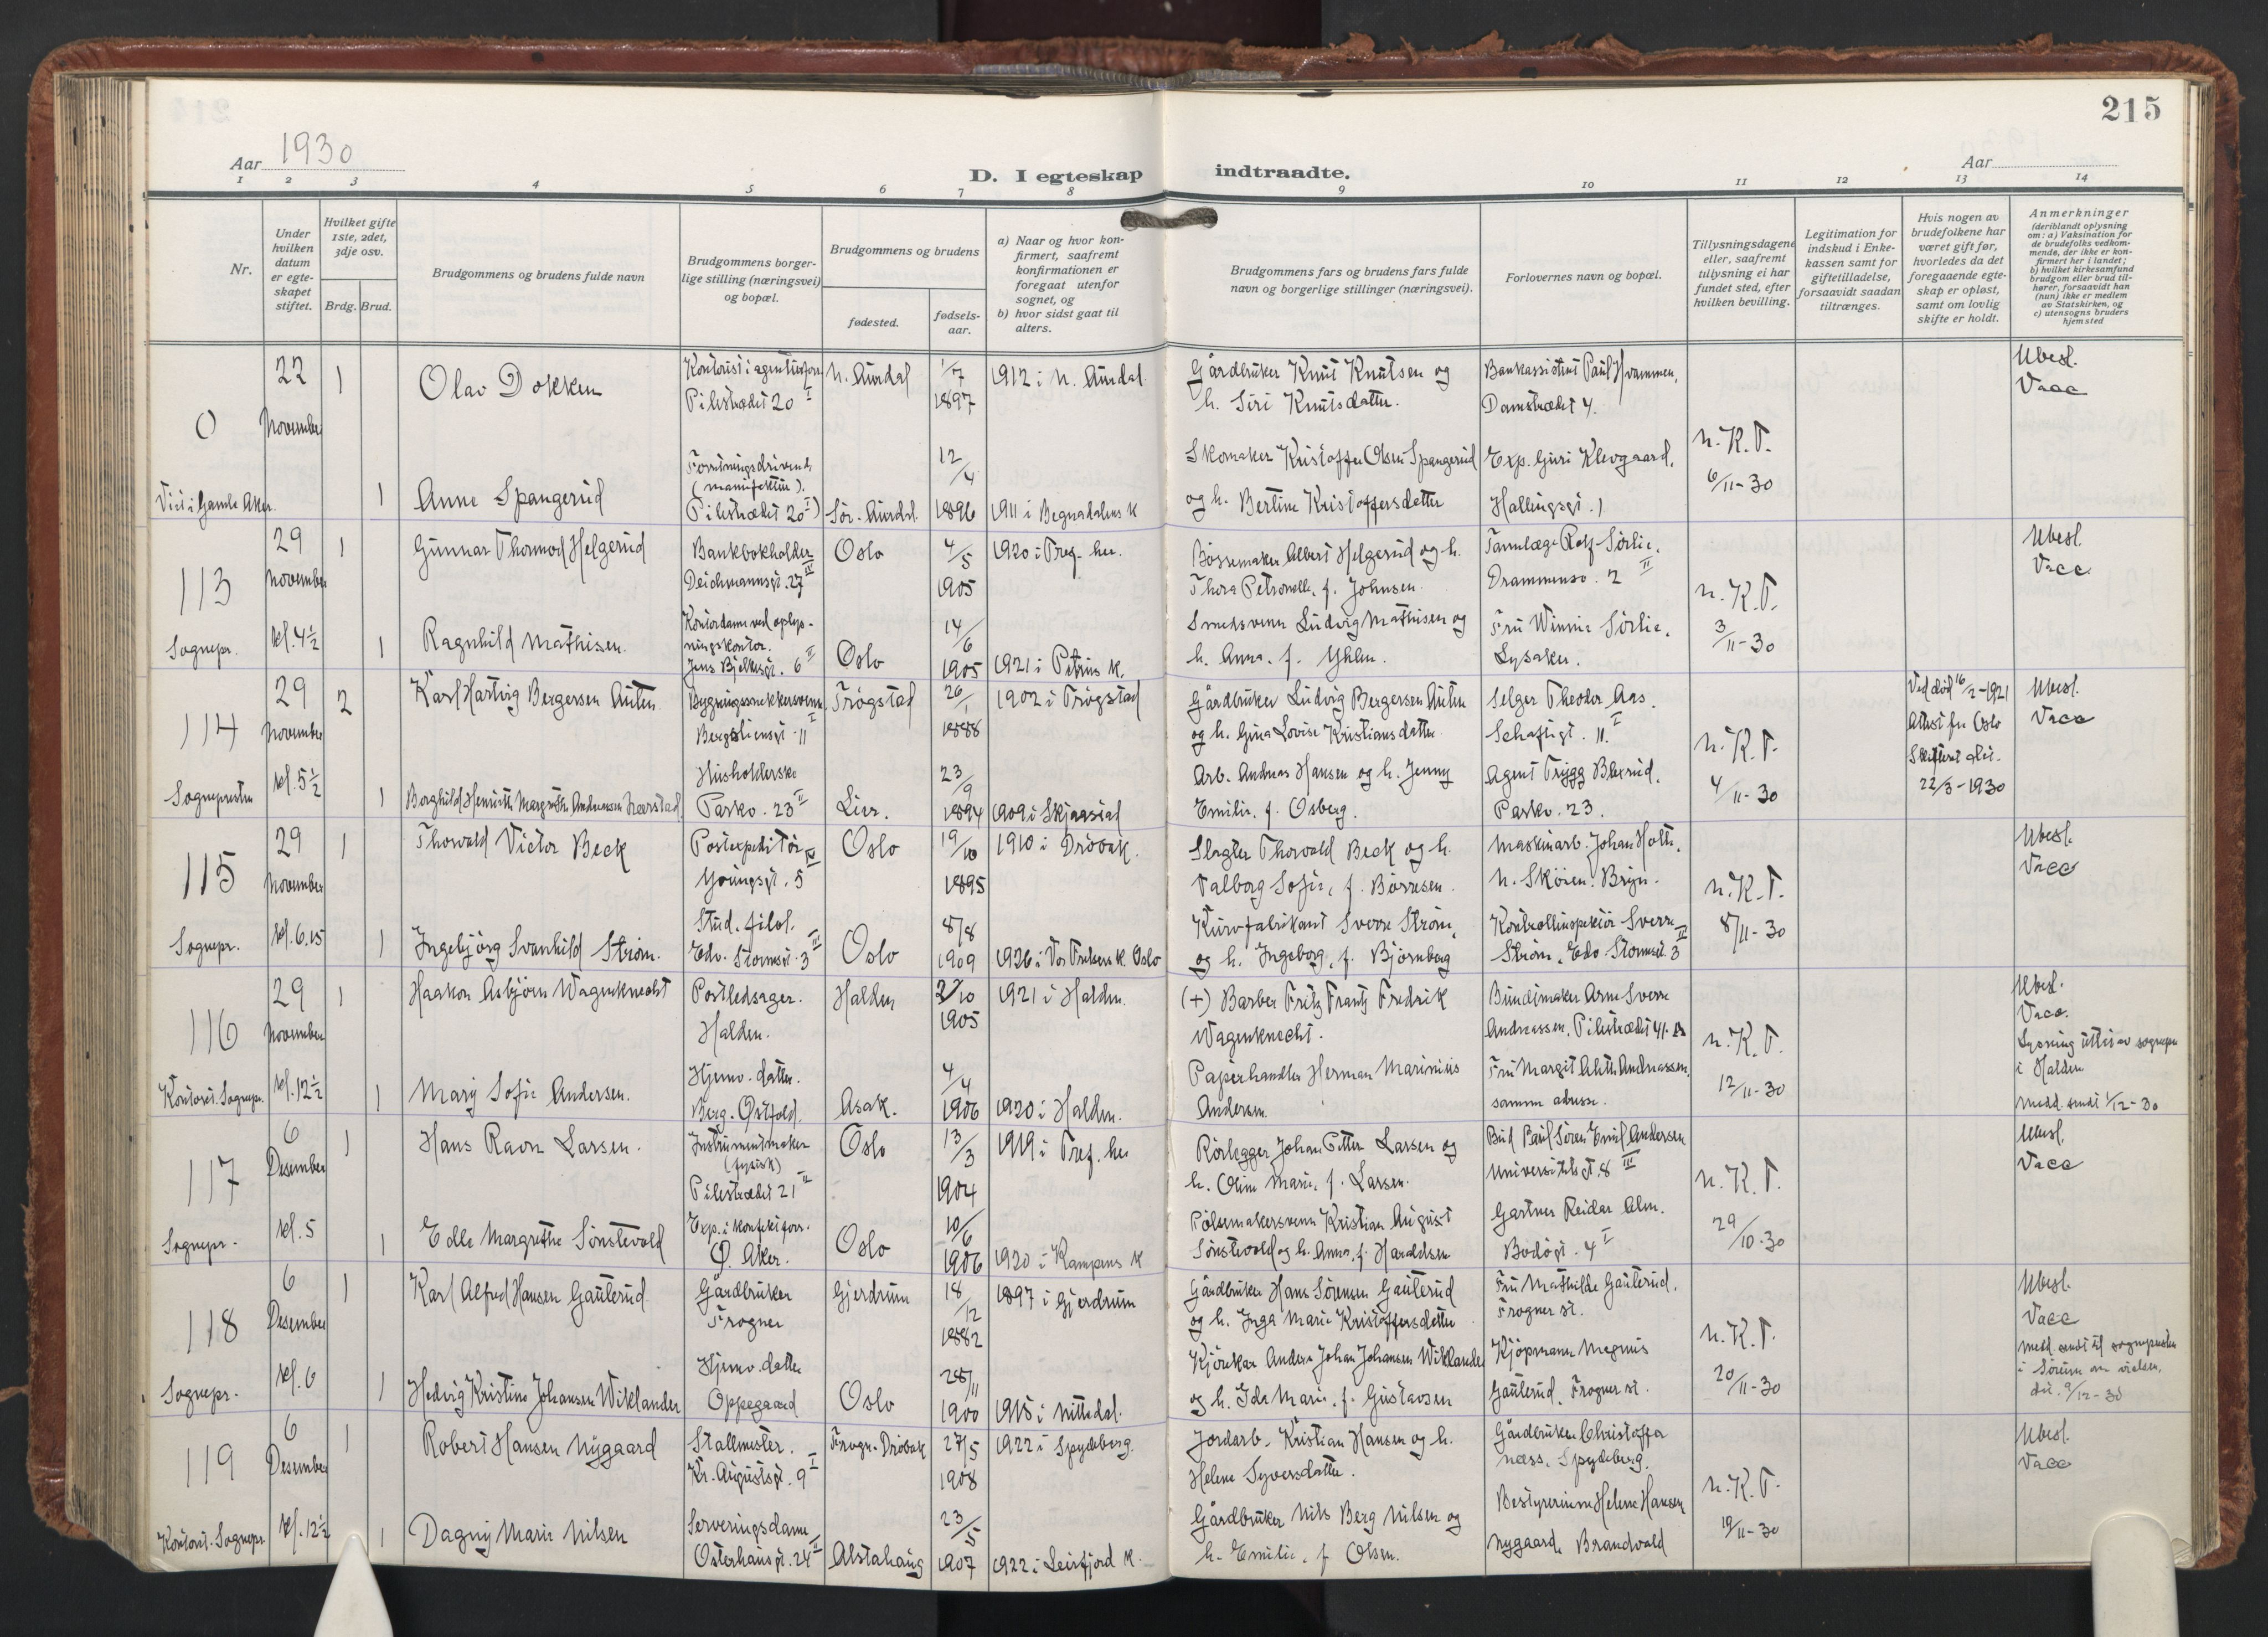 215
Aar 1930
D. I egteskap indtraadte.
Aar
1 2 3 4 5 6 7 8 9 10 11 12 13 14
Nr.
Under hvilken datum er egteskapet stiftet.
Hvilket gifte 1ste, 2det, 3dje osv.
Brdg. Brud.
Brudgommens og brudens fulde navn
Brudgommens borgerlige stilling (næringsvei) og bopæl.
Brudgommens og brudens
fødested.
fødselsaar.
a) Naar og hvor konfirmert, saafremt konfirmationen er foregaat utenfor sognet, og
b) hvor sidst gaat til alters.
Brudgommens fars og brudens fars fulde navn og borgerlige stillinger (næringsvei).
Forlovernes navn og bopæl.
Tillysningsdagene eller, saafremt tillysning ei har fundet sted, efter hvilken bevilling.
Legitimation for indskud i Enkekassen samt for giftetilladelse, forsaavidt saadan tiltrænges.
Hvis nogen av brudefolkene har været gift før, hvorledes da det foregaaende egteskap er opløst, samt om lovlig skifte er holdt.
Anmerkninger (deriblandt oplysning om: a) Vaksination for de brudefolks vedkommende, der ikke er konfirmert her i landet; b) hvilket kirkesamfund brudgom eller brud tilhører, forsaavidt han (hun) ikke er medlem av Statskirken, og c) utensogns bruders hjemsted
0
Viet i Gamle Aker.
22 November
1
Olav Dokken
Pilestrædet 20 I
N. Aurdal
1/7 1897
1912 i N. Aurdal
Gårdbruker Knut Knutsen og
h. Siri Knutsdatter.
Bankassistent Paul Hvammen,
Damstrædet 4.
Ubesl.
Vacc
1
Anne Spangerud
Forretningsdrivende
(manufaktur).
Pilestrædet 20 I)
Sør-Aurdal
12/4 1896
1911 i Begnadalens k
Skomaker Kristoffer Olsen Spangerud
og h. Bertine Kristoffersdatter
Exp. Guri Klevgaard,
Hallingsgt. 1
N.K.T.
6/11-30
113
Sognepr.
29 November
kl. 4½
1
Gunnar Thormod Helgerud
Bankbokholder
Deichmannsgt. 27 IV
Oslo
4/5 1905
1920 i Tref. her.
Bøssemaker Albert Helgerud og h.
Thora Petronelle, f. Johnsen.
Tannlæge Rolf Sørlie,
Drammensv. 2 II
Ubesl.
Vacc.
1
Ragnhild Mathisen.
Kontordame ved oplys-
ningskontor.
Jens Bjelkesgt. 6 II
Oslo
14/6 1905
1921 i Petrus k.
Smedsvenn Ludvig Mathisen og
h. Anna, f. Yhlen.
Fru Winnie Sørlie,
Lysaker.
N.K.T.
3/11-30
114
Sognepresten
29 November
kl. 5½
2
Karl Hartvig Bergersen Auten
Bygningssnekkersvenn
Bergsliensgt. 11 I
Trøgstad
26/1 1888
1902 i Trøgstad
Gårdbruker Ludvig Bergersen Auten
og h. Gina Lovise Kristiansdatter
Selger Theodor Aas,
Schaftigt. 11. I
Ved død 16/2-1921
Attest fra Oslo
Skifterett dat.
22/3-1930
Ubesl.
Vacc
1
Borghild Henriette Margrethe Andreassen Haarstad
Husholderske
Parkv. 23 II
Lier.
23/9 1894
1909 i Skjaastad
Arb. Andreas Hansen og h. Jenny
Emilie, f. Osberg.
Agent Trygg Blexrud,
Parkv. 23.
N.K.T.
4/11-30
115
Sognepr.
29 November
kl. 6.15
1
Thorvald Victor Beck
Postexpeditør
Youngsgt. 5 IV
Oslo
19/10 1895
1910 i Drøbak.
Slagter Thorvald Beck og h.
Valborg Sofie, f. Børresen.
Maskinarb. Johan Holth,
N. Skøien. Bryn.
Ubesl.
Vacc
1
Ingebjørg Svanhild Strøm.
Stud. filol.
Edv. Stormsgt. 3 III
Oslo
8/8 1909
1926 i Vor Frelsers k. Oslo
Kurvfabrikant Sverre Strøm,
og h. Ingeborg, f. Bjørnberg
Kontrollinspektør Sverre
Strøm, Edv. Stormsgt. 3 II
N.K.T.
8/11-30
116
Kontoret. Sognepr.
29 November
kl. 12½
1
Haakon Asbjørn Wagenknecht
Postledsager.
Halden.
Halden
2/10 1905
1921 i Halden.
(+) Barber Fritz Frantz Fredrik
Wagenknecht.
Buntmaker Arne Sverre
Andreassen, Pilestrædet 41
Ubesl.
Vacc.
Lysning utført av sognepr.
i Halden
Medd. sendt 1/12-30
1
Mary Sofie Andersen.
Hjemv. datter.
Berg. Østfold.
Asak.
4/4 1906
1920 i Halden.
Papirhandler Herman Marinius
Andersen.
Fru Margit Aleth Andreassen,
samme adresse.
N.K.T.
12/11-30
117
Sognepr.
6 Desember
kl. 5
1
Hans Ravn Larsen.
Instrumentmaker
(fysisk)
Pilestrædet 21 II
Oslo
13/3 1904
1919 i Tref. her
Rørlegger Johan Petter Larsen og
h. Oline Marie, f. Larsen.
Bud Paul Søren Emil Andersen
Universitetsgt. 8 III
Ubesl.
Vacc
1
Edle Margrethe Sønstevold
Exp. i konfeksjons.
Ø. Aker.
Oslo
10/6 1906
1920 i Kampens k
Pølsemakersvenn Kristian August
Sønstevold og h. Anna, f. Haraldsen
Gartner Reidar Alm.
Bodøgt. 4 I
N.K.T.
29/10-30
118
Sognepr.
6 Desember
kl. 6
1
Karl Alfred Hansen Gauterud
Gårdbruker
Frogner
Gjerdrum
18/12 1882
1897 i Gjerdrum
Gårdbruker Hans Sørensen Gauterud
og h. Inga Marie Kristoffersdatter
Fru Mathilde Gauterud,
Frogner st.
Ubesl.
Vacc
Medd. sendt til sognepresten
i Sørum om vielsen,
dat. 9/12-30
1
Hedvig Kristine Johansen Wiklander
Hjemv. datter
Oppegaard
Oslo
25/11 1900
1915 i Nittedal.
Kjørekar Anders Johan Johansen Wiklander
og h. Ida Marie, f. Gustavsen
Kjøpmann Magnus
Gauterud, Frogner st.
N.K.T.
20/11-30
119
Kontoret. Sognepr.
6 Desember
kl. 12½
1
Robert Hansen Nygaard
Stallmester.
Kr. Augustsgt. 9 I
Frogn-Drøbak
27/5 1908
1922 i Spydeberg.
Jordarb. Kristian Hansen og h.
Helene Syversdatter.
Gårdbruker Christoffer
Næss, Spydeberg.
Ubesl.
Vacc
1
Dagny Marie Nilsen
Serveringsdame
Osterhausgt. 24 II
Alstahaug
23/5 1907
1922 i Leirfjord k.
Gårdbruker Nils Berg Nilsen og
h. Emilie, f. Olsen.
Bestyrerinne Helene Hansen
Nygaard, Brandvold
N.K.T.
19/11-30